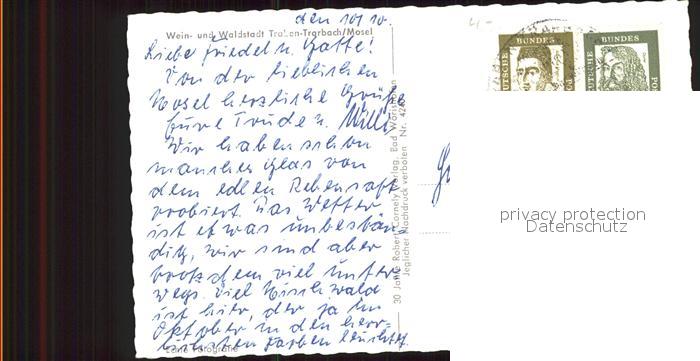 den 10/10.
Wein- und Waldstadt Traben-Trarbach/Mosel
Liebe Friedel u. Gatte!
Von der lieblichen
Mosel herzliche Grüße
Eure Trude u. Willi
Wir haben schon
manches Glas von
dem edlen Rebensaft
probiert. Das Wetter
ist etwas unbestän-
dig, wir sind aber
trotzdem viel unter-
wegs. Viel Mischwald
ist hier, der ja im
Oktober in den herr-
lichsten Farben leuchtet.
Fotografie
30 Jahre Robert Cornely Verlag, Bad Wörishofen
Jeglicher Nachdruck verboten Nr.
4-
DEUTSCHE BUNDES POS
DEUTSCHE BUNDES POS
privacy protection
Datenschutz